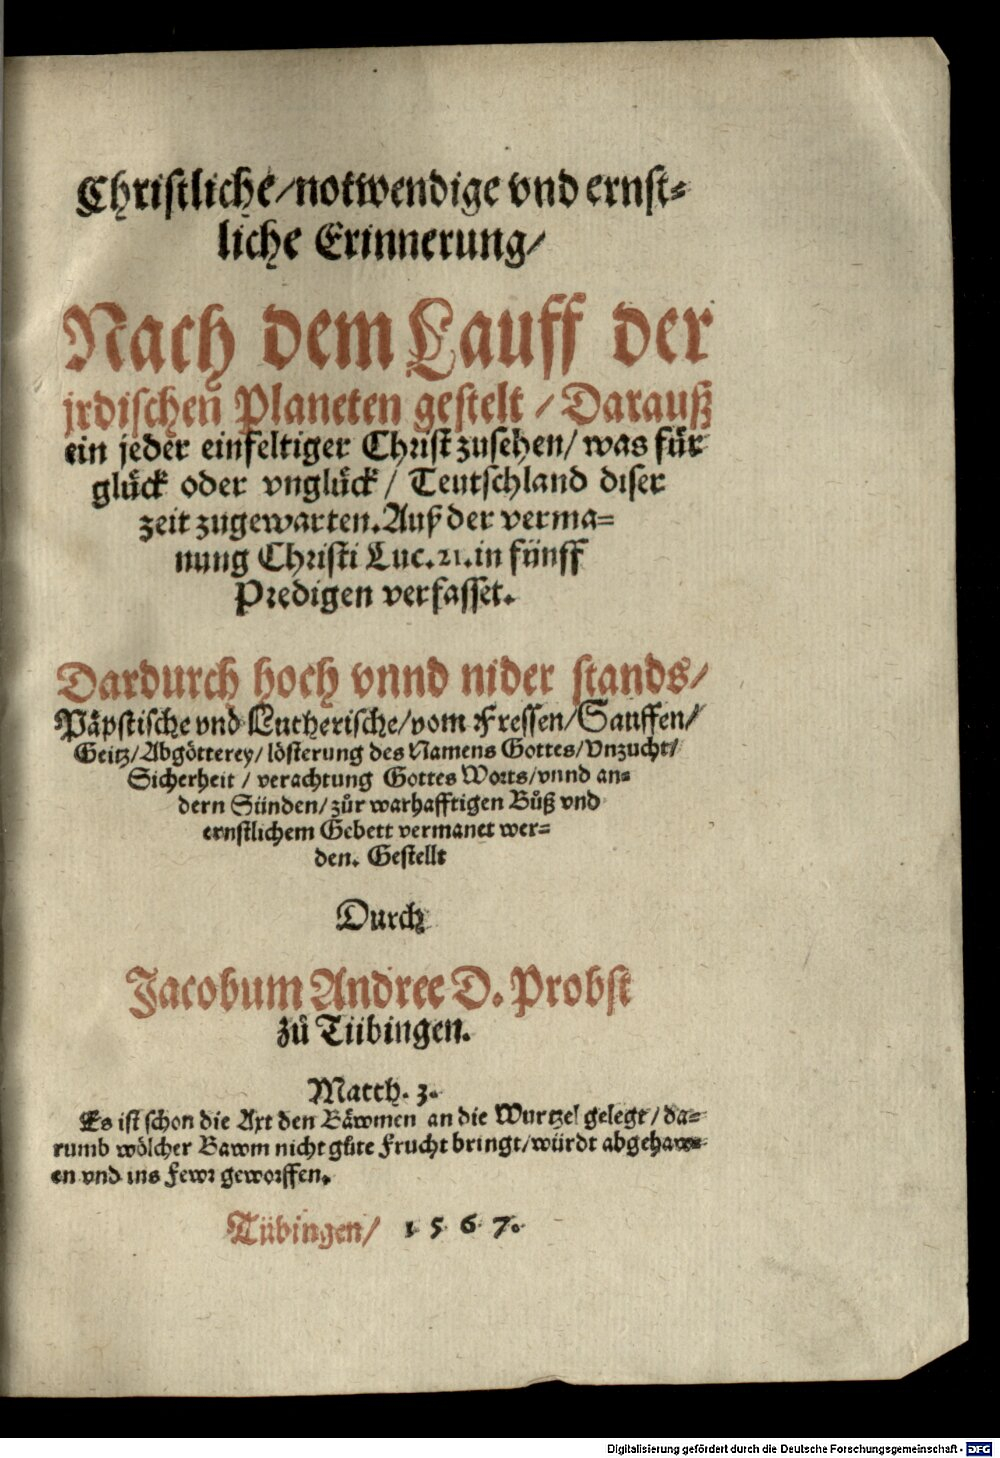 Christliche/notwendige vnd ernst-
liche Erinnerung/
Nach dem Lauff der
jrdischen Planeten gestelt / Darauß
ein jeder einfeltiger Christ zusehen/ was für
glück oder vnglück / Teutschland diser
zeit zugewarten. Auß der verma-
nung Christi Luc. 21. in fünff
Predigen verfasset.
Dardurch hoch vnnd nider stands/
Päpstische vnd Lutherische/vom Fressen/Sauffen/
Geitz/Abgötterey/ lösterung des Namens Gottes/Vnzucht/
Sicherheit / verachtung Gottes Worts/vnnd an-
dern Sünden/ zůr warhafftigen Bůß vnd
ernstlichem Gebett vermanet wer-
den. Gestellt
Durch
Jacobum Andree D. Probst
zů Tübingen.
Matth. 3.
Es ist schon die Axt den Bäwmen an die Wurtzel gelegt/ da-
rumb wölcher Bawm nicht gůte Frucht bringt/würdt abgehaw-
en vnd ins Fewr geworffen.
Tübingen/ 1 5 6 7.
Digitalisierung gefördert durch die Deutsche Forschungsgemeinschaft - DFG